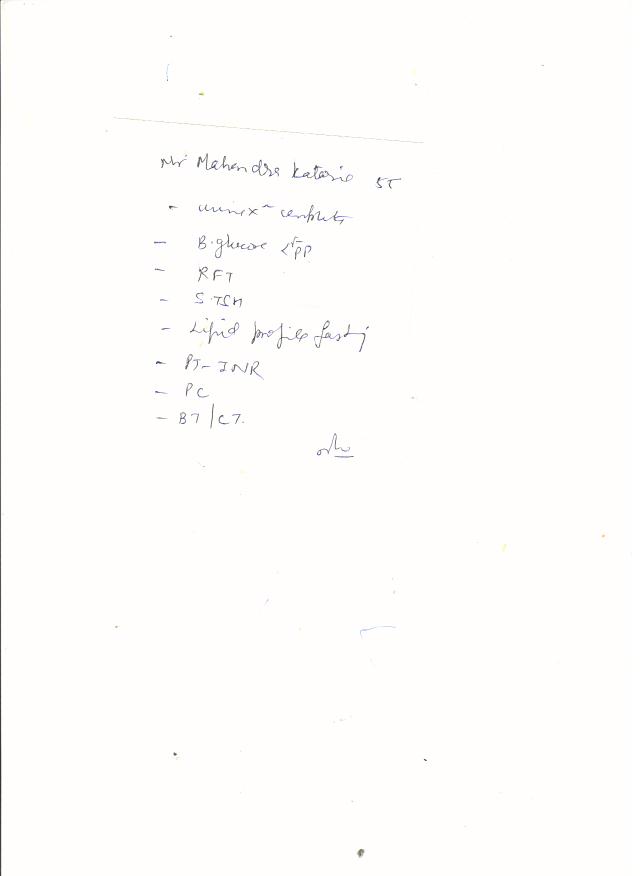 Mr Mahendra Kataria 55
- urine xn complete
- B. glucose <F PP
- RFT
- S. TSH
- Lipid profile fasting
- PT-INR
- PC
- BT/CT.